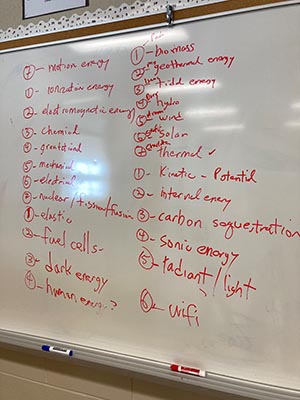 ⑦ - motion energy
① - ionization energy
② - electromagnetic energy
③ - chemical
④ - gravitational
⑤ - mechanical
⑥ - electrical
⑦ - nuclear / fission/fusion
① - elastic
② - fuel cells -
③ - dark energy
④ - human energy?
① - biomass
② - geothermal energy
③ - tidal energy
④ - hydro
⑤ - wind
⑥ - solar
⑦ - thermal
① - Kinetic - Potential
② - internal energy
③ - carbon sequestration
④ - sonic energy
⑤ - Radiant / light
⑥ - wifi